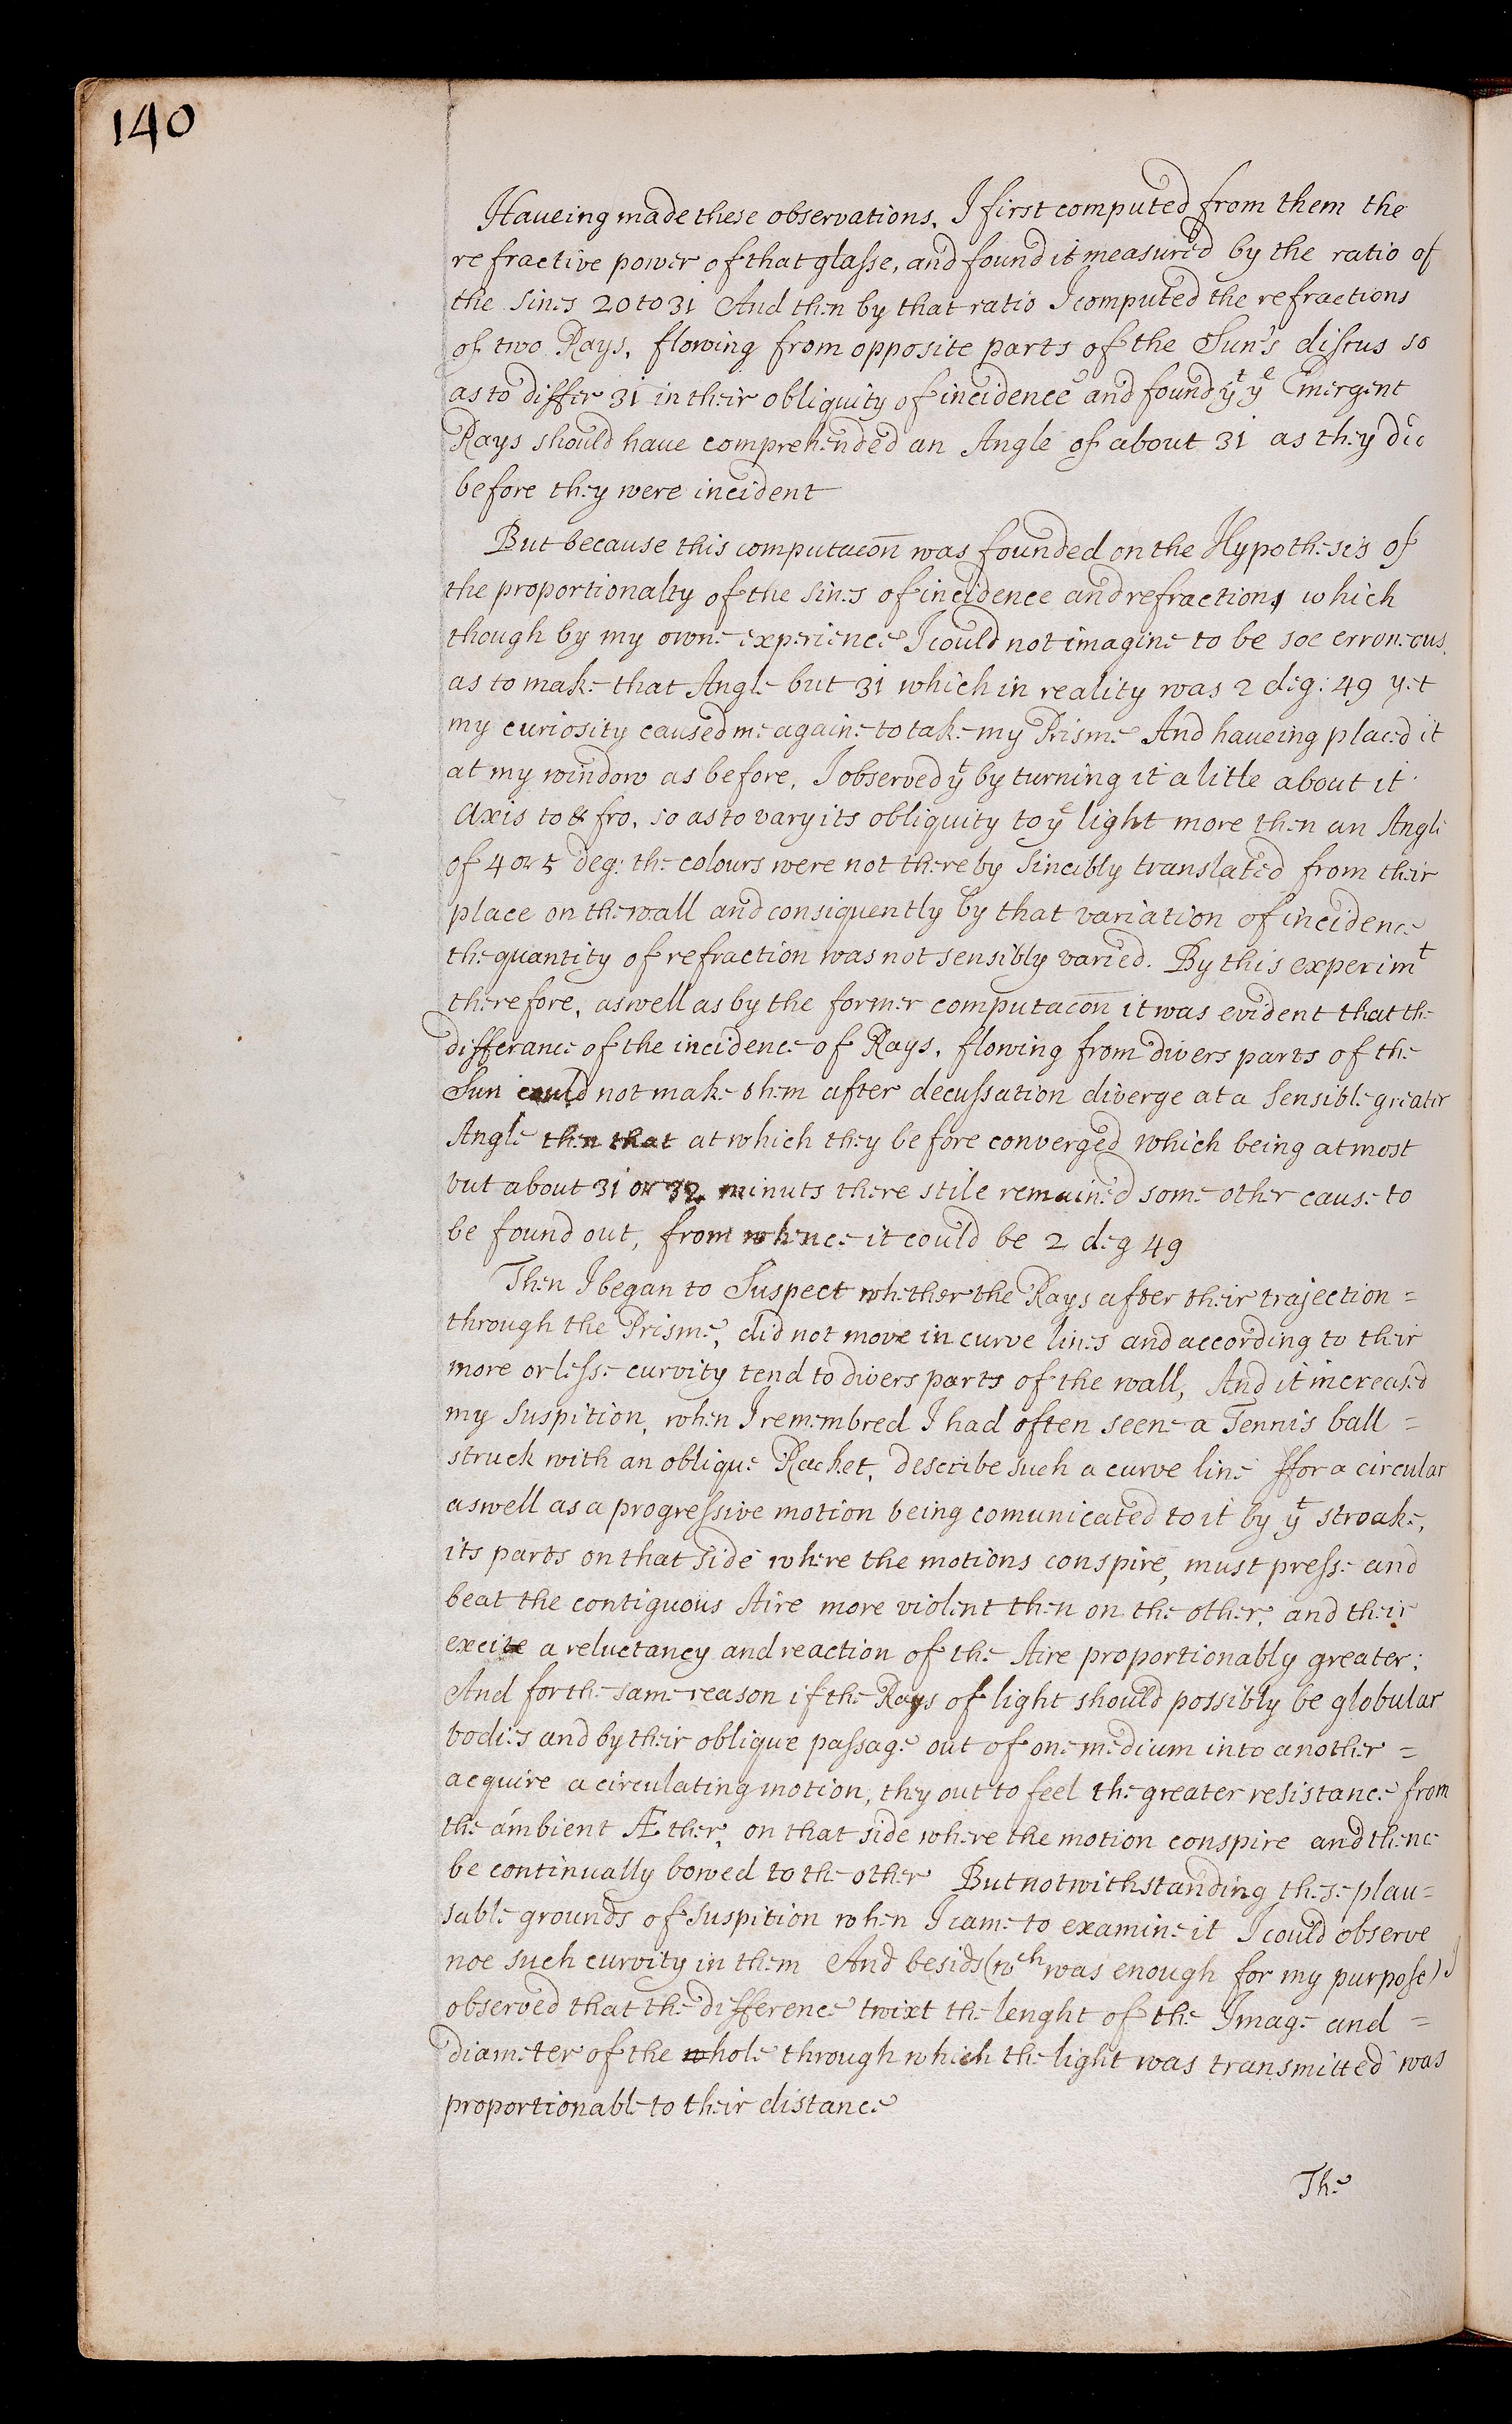 140
Haveing made these observations, I first computed from them the
refractive power of that glasse, and found it measured by the ratio of
the sines 20 to 31 And then by that ratio I computed the refractions
of two Rays, flowing from opposite parts of the Sun's discus so
as to differ 31 in their obliquity of incidence and found yt ye Emergent
Rays should have comprehended an Angle of about 31 as they did
before they were incident
But because this computacon was founded on the Hypothesis of
the proportionalty of the sines of incidence and refractions which
though by my owne experience I could not imagine to be soe erroneous,
as to make that Angle but 31 which in reality was 2 deg: 49 yet
my curiosity caused me againe to take my Prisme And haveing placed it
at my window as before, I observed yt by turning it a litle about it
Axis to & fro, so as to vary its obliquity to ye light more then an Angle
of 4 or 5 deg: the colours were not thereby sincibly translated from their
place on the wall and consiquently by that variation of incidence
the quantity of refraction was not sensibly varied. By this experimt
therefore, aswell as by the former computacon it was evident that the
differance of the incidence of Rays, flowing from divers parts of the
Sun could not make them after decussation diverge at a sensible greater
Angle then that at which they before converged which being at most
but about 31 or 32 minuts there stile remained some other cause to
be found out, from whence it could be 2 deg 49
Then I began to Suspect whether the Rays after their trajection =
through the Prisme, did not move in curve lines and according to their
more or lesse curvity tend to divers parts of the wall, And it increased
my suspition, when I remembred I had often seene a Tennis ball =
struck with an oblique Racket, describe such a curve line ffor a circular
aswell as a progressive motion being comunicated to it by yt stroake,
its parts on that side where the motions conspire, must presse and
beat the contiguous Aire more violent then on the other, and their
excite a reluctancy and reaction of the Aire proportionably greater;
And for the same reason if the Rays of light should possibly be globular
bodies and by their oblique passage out of one medium into another =
acquire a circulating motion, they out to feel the greater resistance from
the ambient Æther, on that side where the motion conspire and thence
be continually bowed to the other But notwithstanding these plau=
sable grounds of suspition when I came to examine it I could observe
noe such curvity in them And besids (wch was enough for my purpose) I
observed that the difference twixt the lenght of the Image and =
diameter of the whole through which the light was transmitted was
proportionable to their distance
The